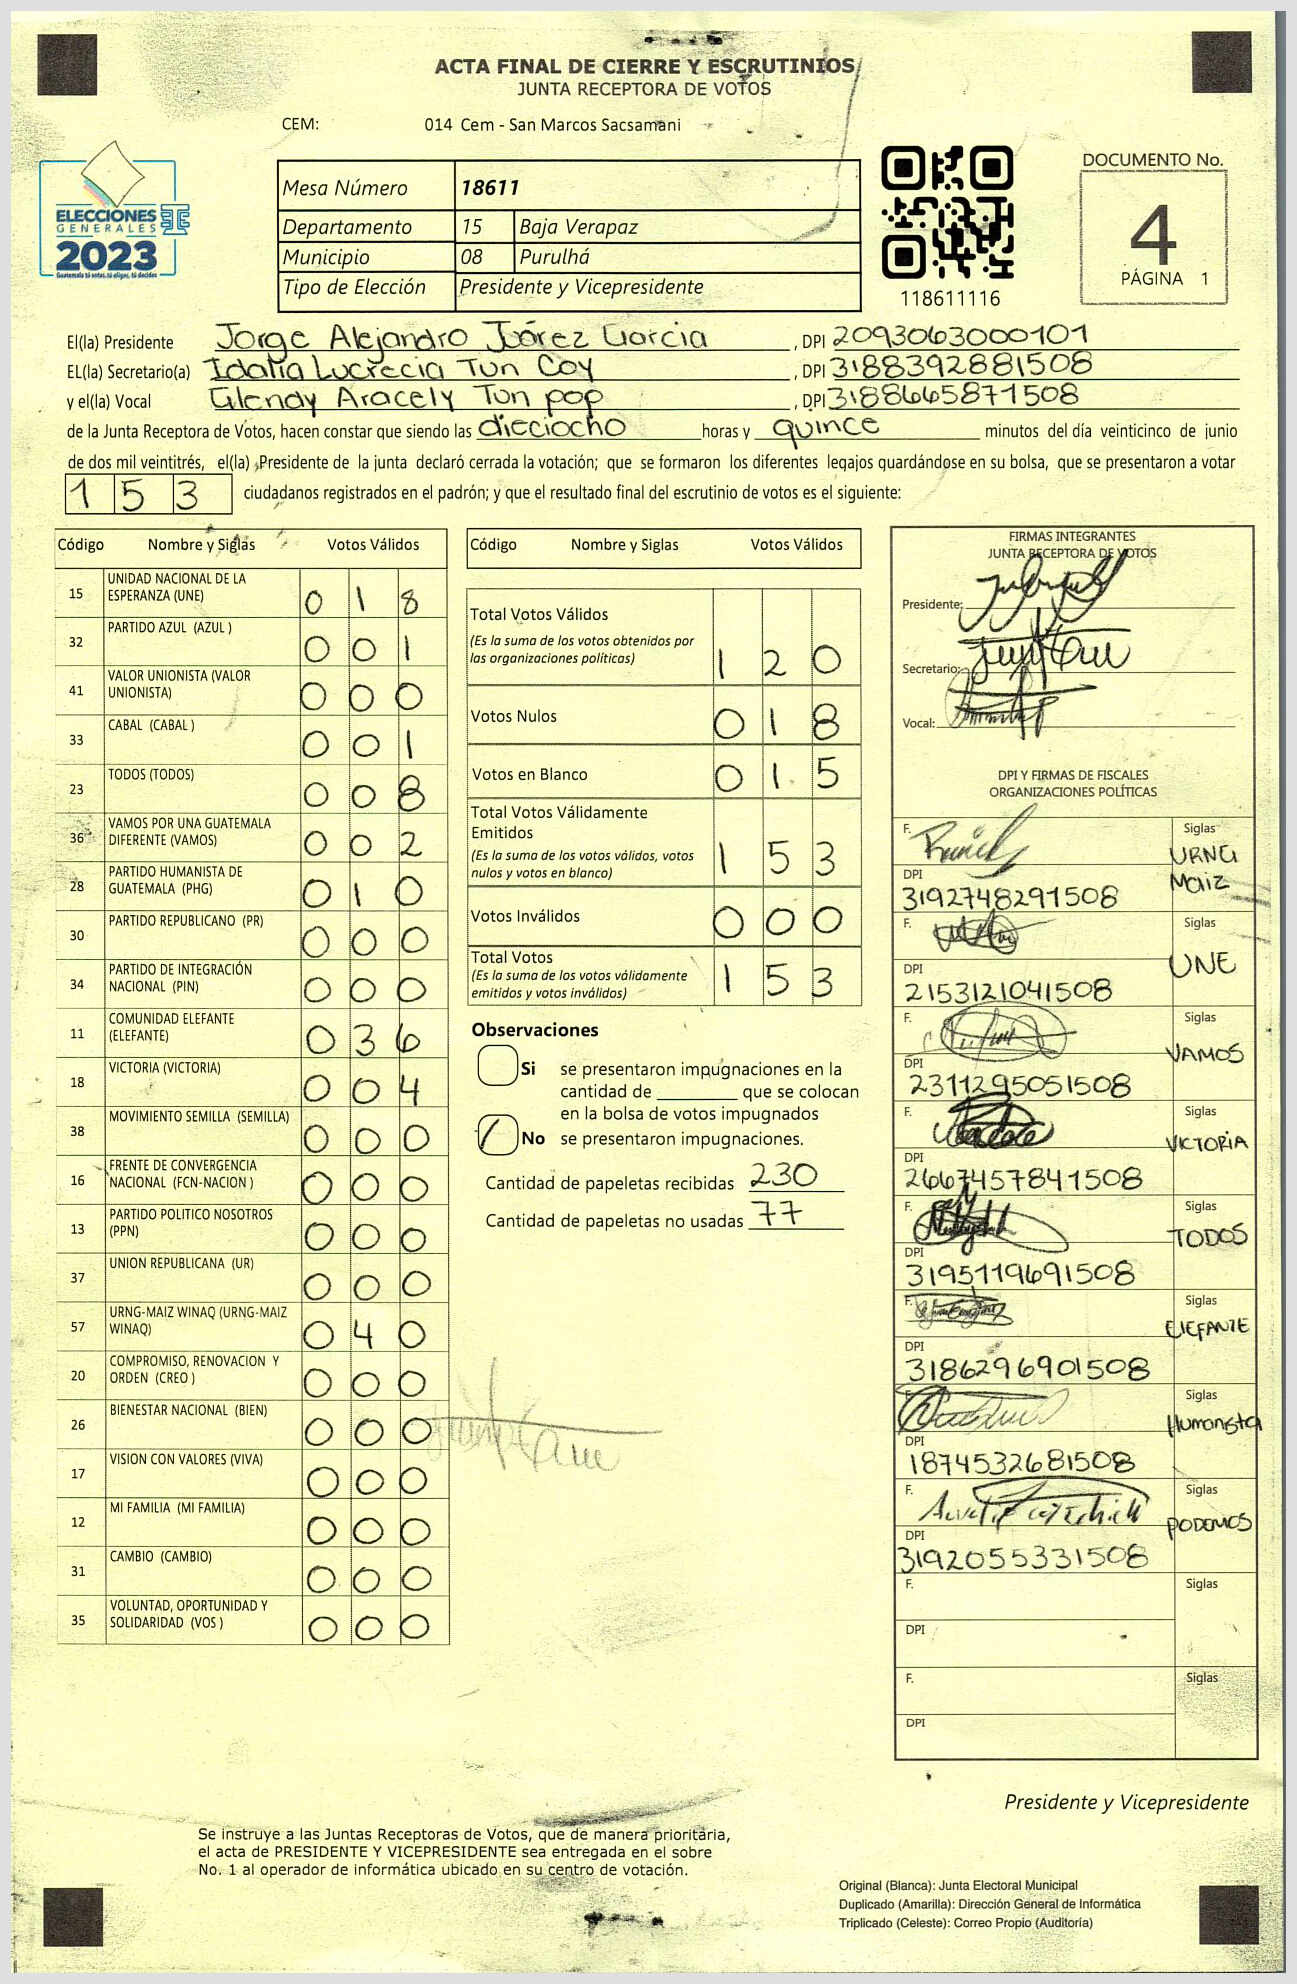 ACTA FINAL DE CIERRE Y ESCRUTINIOS
JUNTA RECEPTORA DE VOTOS
CEM: 014 Cem - San Marcos Sacsamani
ELECCIONES
GENERALES
2023
Guatemala tú votas, tú eliges, tú decides
Mesa Número 18611
Departamento 15 Baja Verapaz
Municipio 08 Purulhá
Tipo de Elección Presidente y Vicepresidente
118611116
DOCUMENTO No.
4
PÁGINA 1
El(la) Presidente Jorge Alejandro Juárez Garcia, DPI 2093063000101
EL(la) Secretario(a) Idalia Lucrecia Tun Coy, DPI 3188392881508
y el(la) Vocal Glendy Aracely Tun pop, DPI 3188665871508
de la Junta Receptora de Votos, hacen constar que siendo las dieciocho horas y quince minutos del día veinticinco de junio
de dos mil veintitrés, el(la) Presidente de la junta declaró cerrada la votación; que se formaron los diferentes legajos guardándose en su bolsa, que se presentaron a votar
153 ciudadanos registrados en el padrón; y que el resultado final del escrutinio de votos es el siguiente:
Código Nombre y Siglas Votos Válidos
15 UNIDAD NACIONAL DE LA ESPERANZA (UNE) 018
32 PARTIDO AZUL (AZUL ) 001
41 VALOR UNIONISTA (VALOR UNIONISTA) 000
33 CABAL (CABAL ) 001
23 TODOS (TODOS) 008
36 VAMOS POR UNA GUATEMALA DIFERENTE (VAMOS) 002
28 PARTIDO HUMANISTA DE GUATEMALA (PHG) 010
30 PARTIDO REPUBLICANO (PR) 000
34 PARTIDO DE INTEGRACIÓN NACIONAL (PIN) 000
11 COMUNIDAD ELEFANTE (ELEFANTE) 036
18 VICTORIA (VICTORIA) 004
38 MOVIMIENTO SEMILLA (SEMILLA) 000
16 FRENTE DE CONVERGENCIA NACIONAL (FCN-NACION ) 000
13 PARTIDO POLITICO NOSOTROS (PPN) 000
37 UNION REPUBLICANA (UR) 000
57 URNG-MAIZ WINAQ (URNG-MAIZ WINAQ) 040
20 COMPROMISO, RENOVACION Y ORDEN (CREO ) 000
26 BIENESTAR NACIONAL (BIEN) 000
17 VISION CON VALORES (VIVA) 000
12 MI FAMILIA (MI FAMILIA) 000
31 CAMBIO (CAMBIO) 000
35 VOLUNTAD, OPORTUNIDAD Y SOLIDARIDAD (VOS ) 000
Código Nombre y Siglas Votos Válidos
Total Votos Válidos
(Es la suma de los votos obtenidos por
las organizaciones políticas) 120
Votos Nulos 018
Votos en Blanco 015
Total Votos Válidamente
Emitidos
(Es la suma de los votos válidos, votos
nulos y votos en blanco) 153
Votos Inválidos 000
Total Votos
(Es la suma de los votos válidamente
emitidos y votos inválidos) 153
Observaciones
Si se presentaron impugnaciones en la
cantidad de ________ que se colocan
en la bolsa de votos impugnados
No se presentaron impugnaciones.
Cantidad de papeletas recibidas 230
Cantidad de papeletas no usadas 77
FIRMAS INTEGRANTES
JUNTA RECEPTORA DE VOTOS
Presidente:
Secretario:
Vocal:
DPI Y FIRMAS DE FISCALES
ORGANIZACIONES POLÍTICAS
F. Siglas
URNG
Maiz
DPI
3192748291508
F. Siglas
UNE
DPI
2153121041508
F. Siglas
VAMOS
DPI
2311295051508
F. Siglas
VICTORIA
DPI
2667457841508
F. Siglas
TODOS
DPI
3195119691508
F. Siglas
ElEFANTE
DPI
3186296901508
F. Siglas
Humanista
DPI
1874532681508
F. Siglas
PODEMOS
DPI
3192055331508
F. Siglas
DPI
F. Siglas
DPI
Presidente y Vicepresidente
Se instruye a las Juntas Receptoras de Votos, que de manera prioritaria,
el acta de PRESIDENTE Y VICEPRESIDENTE sea entregada en el sobre
No. 1 al operador de informática ubicado en su centro de votación.
Original (Blanca): Junta Electoral Municipal
Duplicado (Amarilla): Dirección General de Informática
Triplicado (Celeste): Correo Propio (Auditoría)